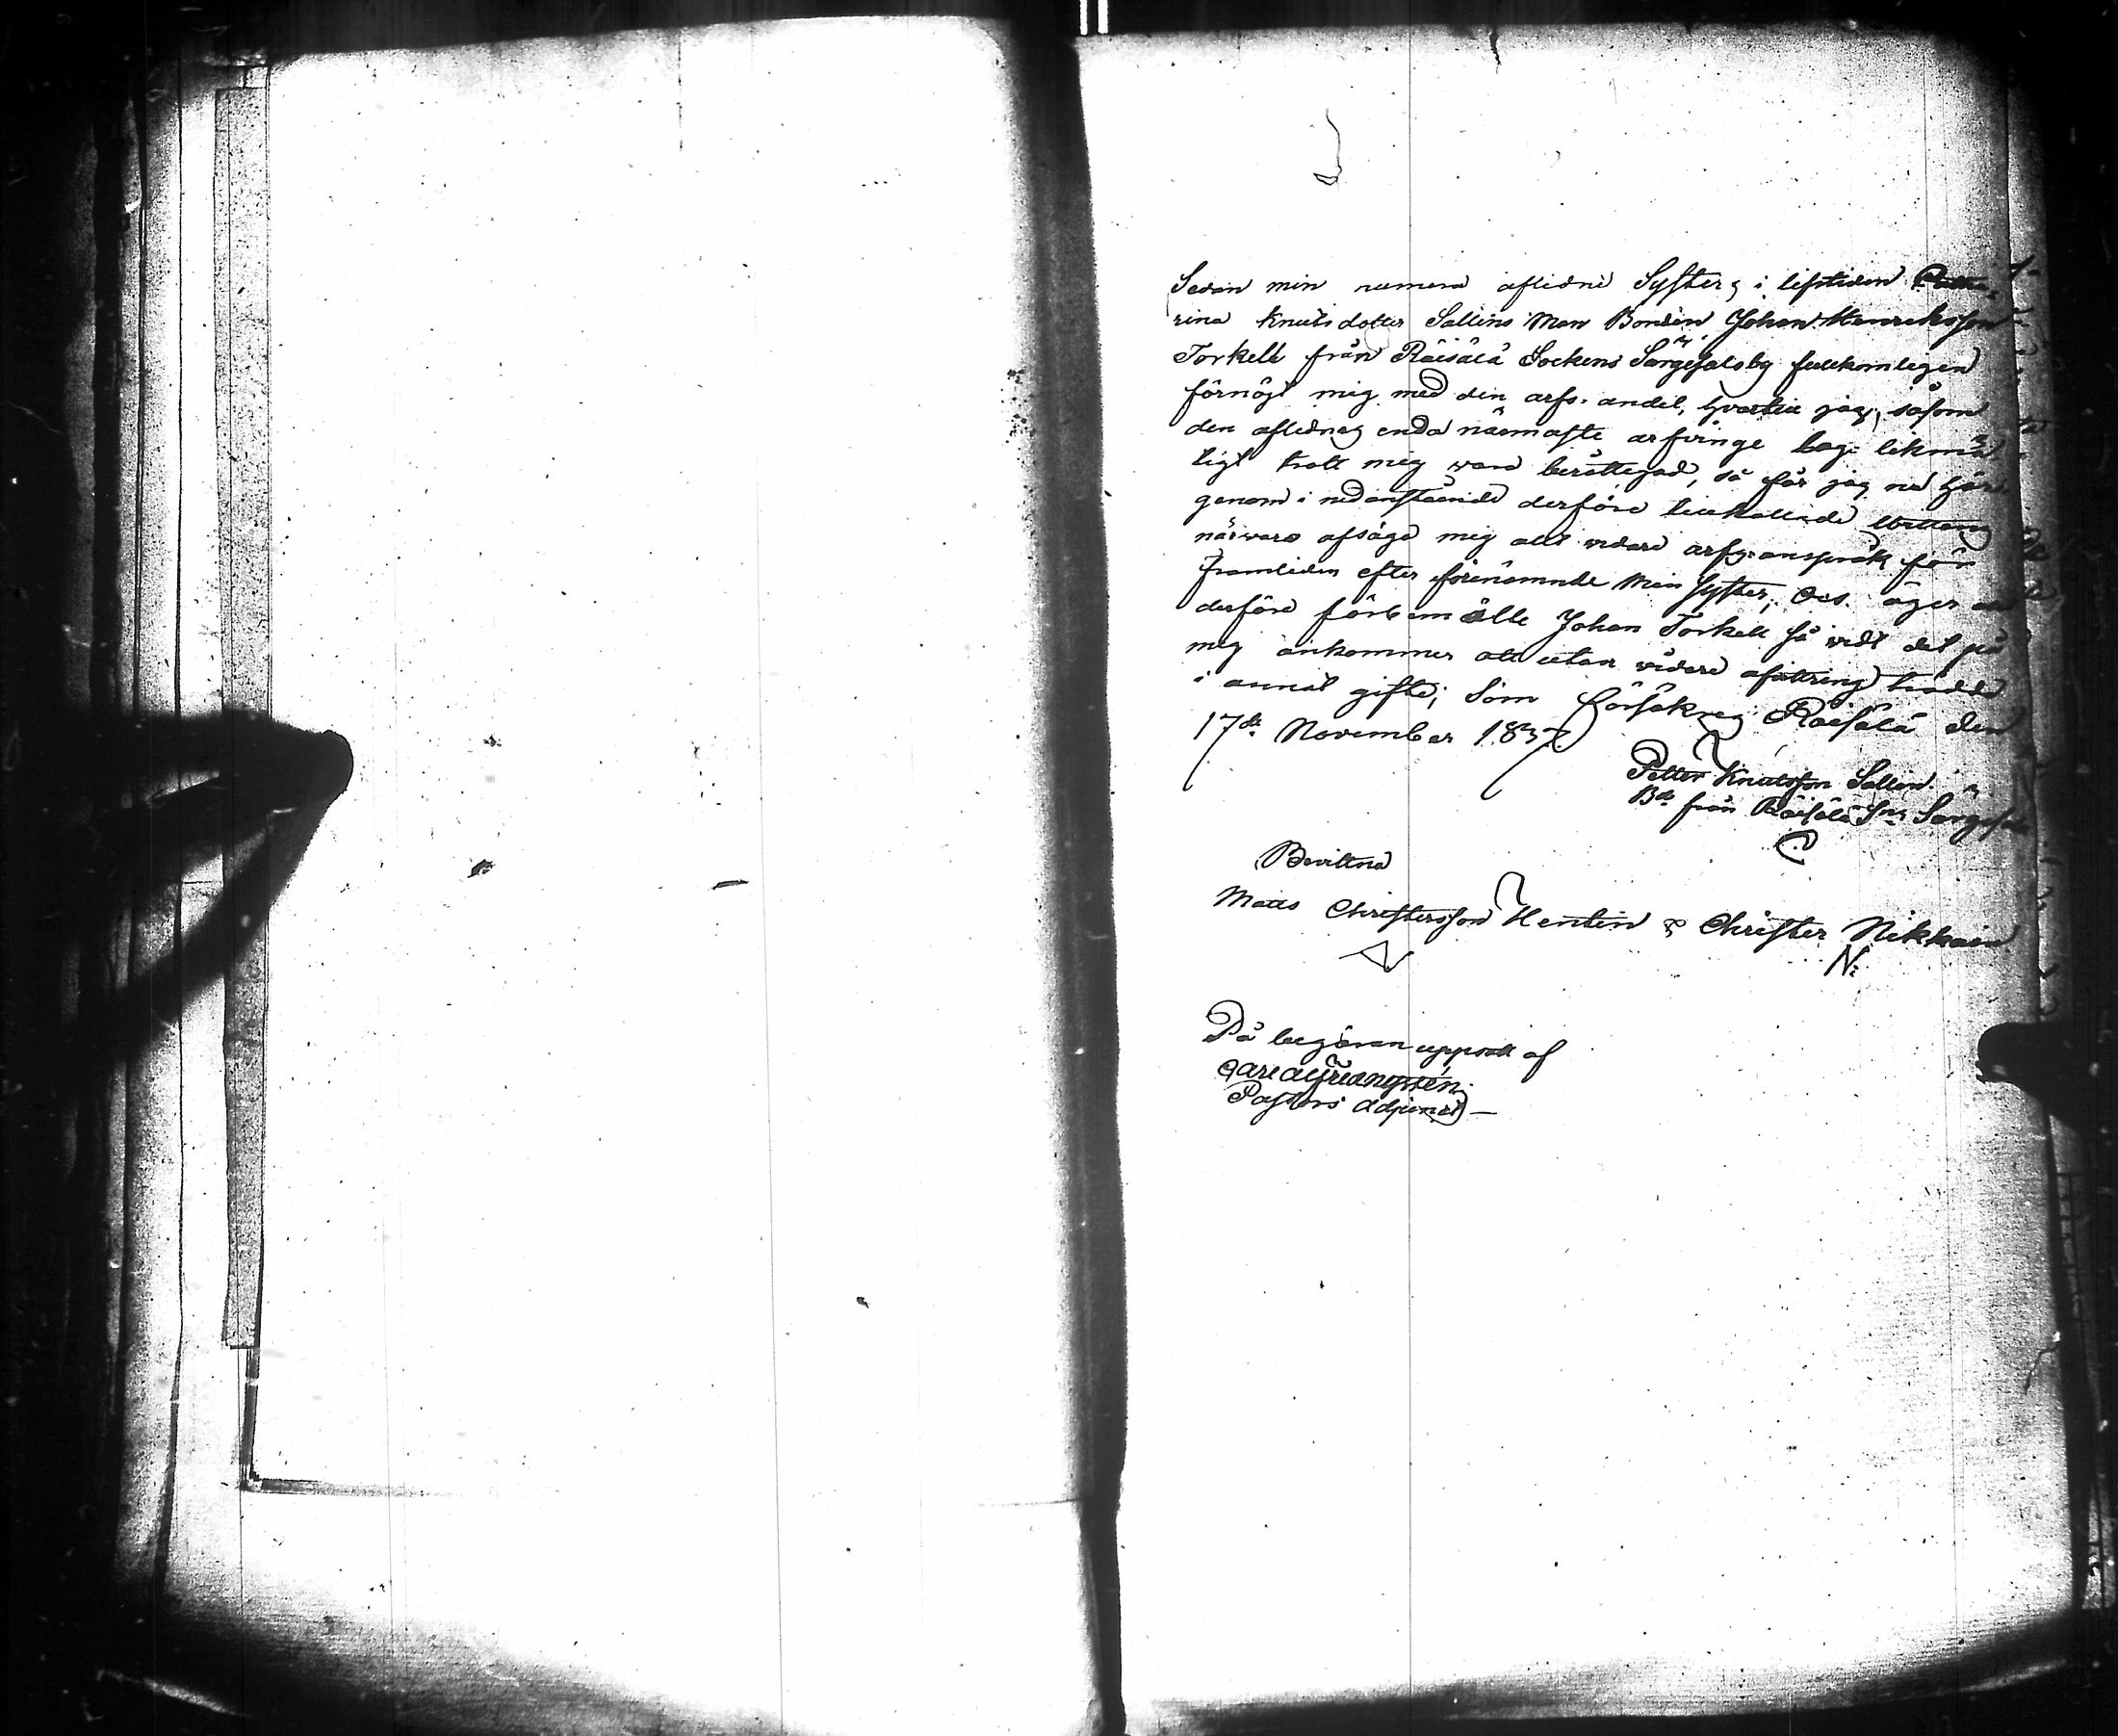 Sedan min numera aflidne Systers i lifstiden Catha-
rina Knutsdotter Sallins Man Bonden Johan Henriksson
Torkell från Räisälä Sockens Särgisalo by fullkomligen
förnögt mig med den arfs-andel, hvartill jag, såsom
den aflidnes enda närmaste arfvinge lag-likmä-
tigt trott mig vara berättigad, så får jag nu här-
genom i nedanstående derföre tillkallade vittnens
närvaro afsäga mig allt vidare arfs-anspråk för
framtiden efter förenämnde min Syster, och äger
derföre förbemälte Johan Torkell så vidt det på
mig ankommer att utan vidare afvittring träda
i annat gifte; Som försäkras Räisälä den
17de November 1837
Petter Knutsson Sallin
Bde från Räisälä Sn
Bevittna
Matts Christersson Hentin & Christer Nikkain
N:
På begäran uppsatt af
Pastors Adjunct